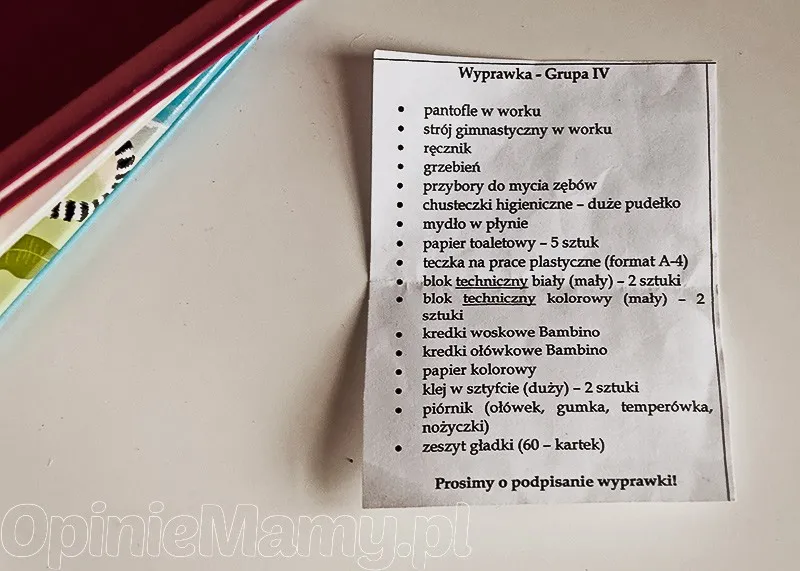 Wyprawka - Grupa IV
• pantofle w worku
• strój gimnastyczny w worku
• ręcznik
• grzebień
• przybory do mycia zębów
• chusteczki higieniczne – duże pudełko
• mydło w płynie
• papier toaletowy – 5 sztuk
• teczka na prace plastyczne (format A-4)
• blok techniczny biały (mały) – 2 sztuki
• blok techniczny kolorowy (mały) – 2
sztuki
• kredki woskowe Bambino
• kredki ołówkowe Bambino
• papier kolorowy
• klej w sztyfcie (duży) – 2 sztuki
• piórnik (ołówek, gumka, temperówka,
nożyczki)
• zeszyt gładki (60 – kartek)
Prosimy o podpisanie wyprawki!
OpinieMamy.pl